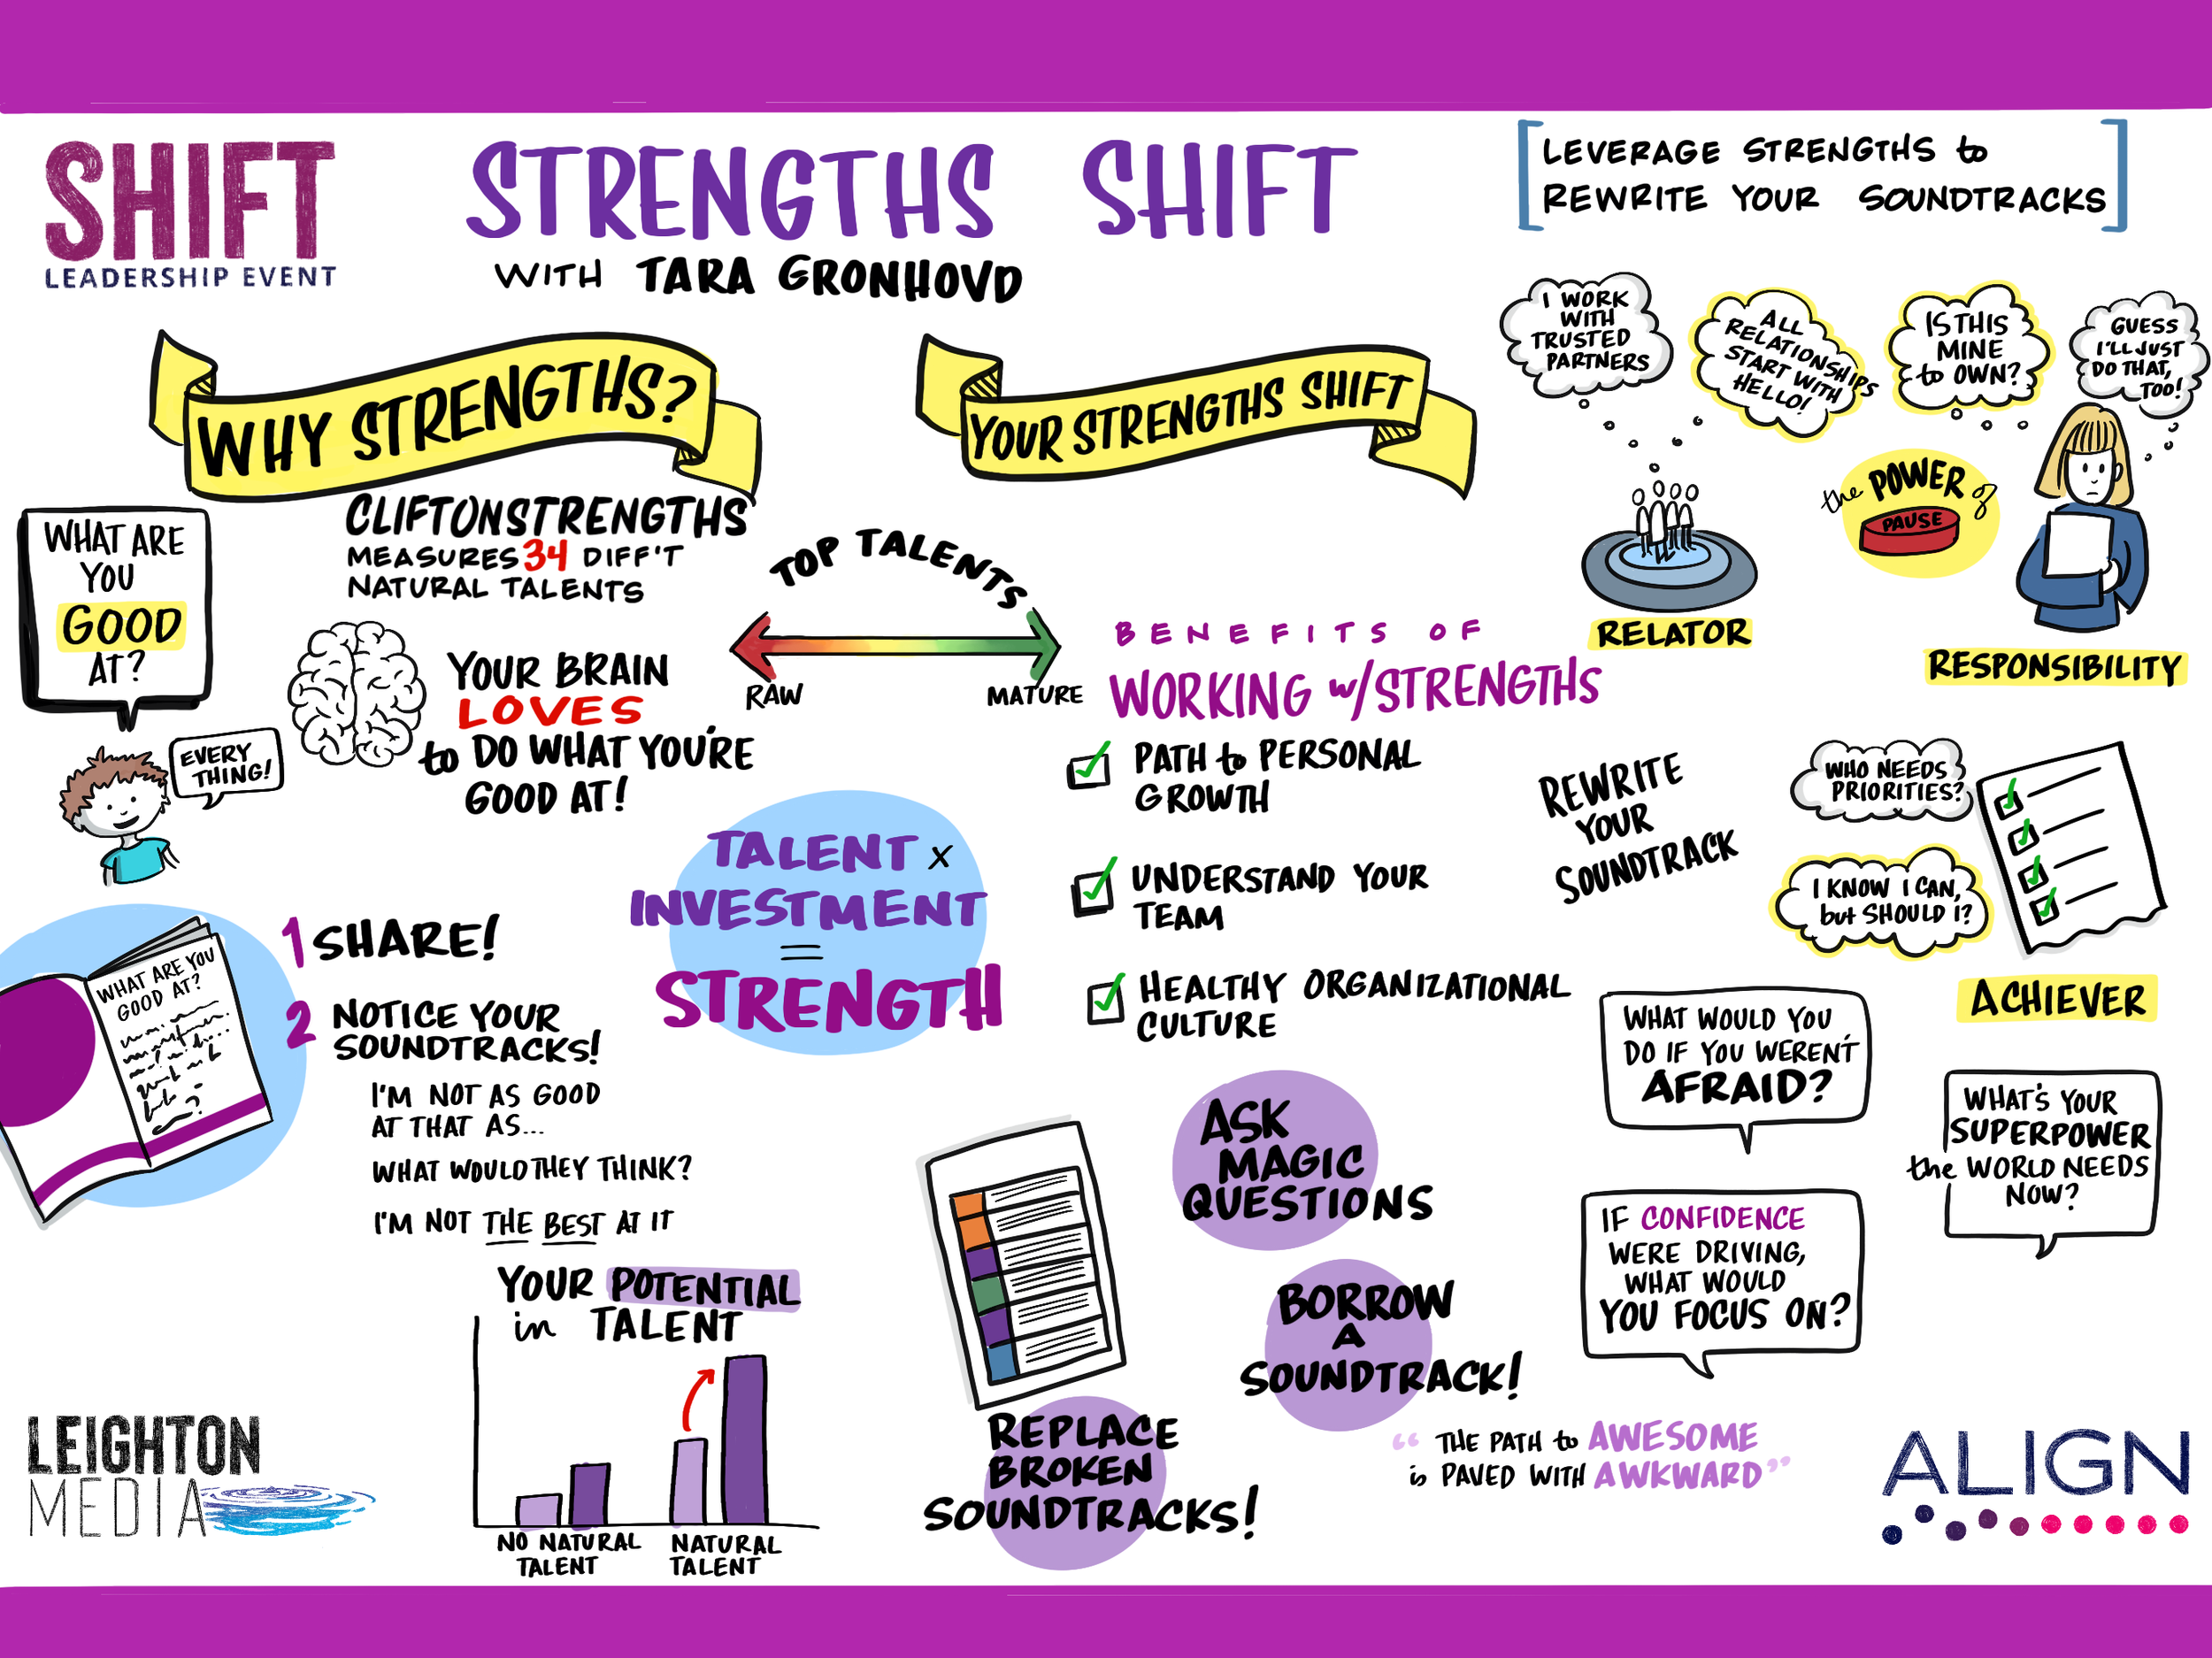 SHIFT
LEADERSHIP EVENT
STRENGTHS SHIFT
WITH TARA GRONHOVD
LEVERAGE STRENGTHS to
REWRITE YOUR SOUNDTRACKS
WHY STRENGTHS?
WHAT ARE
YOU
GOOD
AT?
EVERY
THING!
CLIFTONSTRENGTHS
MEASURES 34 DIFF'T
NATURAL TALENTS
YOUR BRAIN
LOVES
to DO WHAT YOU'RE
GOOD AT!
TOP TALENTS
RAW
MATURE
TALENT x
INVESTMENT
=
STRENGTH
WHAT ARE YOU
GOOD AT?
1 SHARE!
2 NOTICE YOUR
SOUNDTRACKS!
I'M NOT AS GOOD
AT THAT AS...
WHAT WOULD THEY THINK?
I'M NOT THE BEST AT IT
YOUR POTENTIAL
in TALENT
NO NATURAL
TALENT
NATURAL
TALENT
LEIGHTON
MEDIA
YOUR STRENGTHS SHIFT
BENEFITS OF
WORKING w/STRENGTHS
PATH to PERSONAL
GROWTH
UNDERSTAND YOUR
TEAM
HEALTHY ORGANIZATIONAL
CULTURE
I WORK
WITH
TRUSTED
PARTNERS
ALL
RELATIONSHIPS
START WITH
HELLO!
RELATOR
IS THIS
MINE
to OWN?
GUESS
I'LL JUST
DO THAT,
TOO!
the POWER of
PAUSE
RESPONSIBILITY
REWRITE
YOUR
SOUNDTRACK
WHO NEEDS
PRIORITIES?
I KNOW I CAN,
but SHOULD I?
ACHIEVER
ASK
MAGIC
QUESTIONS
BORROW
A
SOUNDTRACK!
REPLACE
BROKEN
SOUNDTRACKS!
WHAT WOULD YOU
DO IF YOU WEREN'T
AFRAID?
WHAT'S YOUR
SUPERPOWER
the WORLD NEEDS
NOW?
IF CONFIDENCE
WERE DRIVING,
WHAT WOULD
YOU FOCUS ON?
"THE PATH to AWESOME
is PAVED WITH AWKWARD"
ALIGN